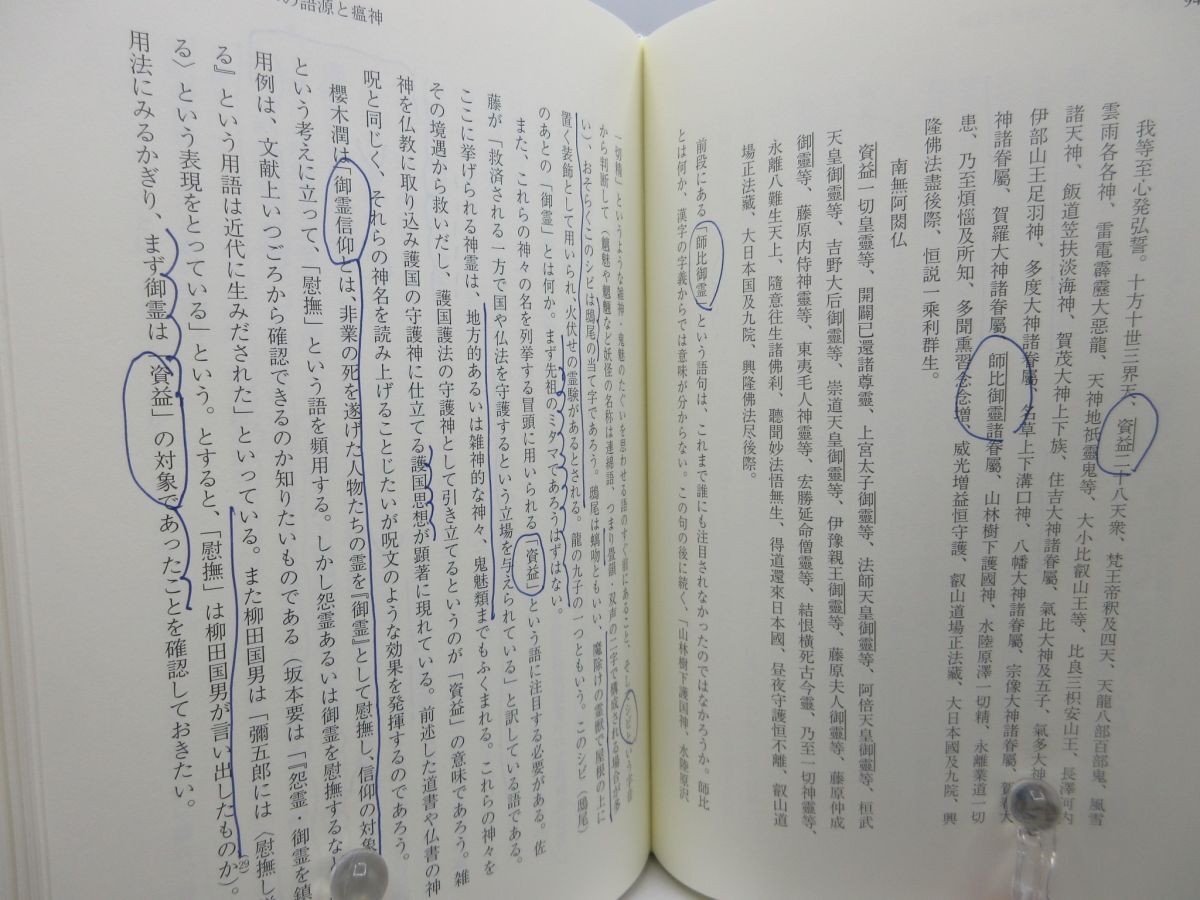 94
我等至心発弘誓。十方十世三界天、資益二十八天衆、梵王帝釈及四天、天龍八部百部鬼、風雪
雲雨各各神、雷電霹靂大惡龍、天神地祇靈鬼等、大小比叡山王等、比良三枳安山王、長澤河內
諸天神、飯道笠扶淡海神、賀茂大神上下族、住吉大神諸眷屬、氣比大神及五子、氣多大神
伊部山王足羽神、多度大神諸眷屬、名草上下溝口神、八幡大神諸眷屬、宗像大神諸眷屬、賀春大
神諸眷屬、賀羅大神諸眷屬、師比御靈諸眷屬、山林樹下護國神、水陸原澤一切精、永離業道一切
患、乃至煩惱及所知、多聞熏習念念增、威光増益恒守護、叡山道場正法藏、大日本國及九院、興
隆佛法盡後際、恒説一乘利群生。
南無阿閦仏
資益一切皇靈等、開闢已還諸尊靈、上宮太子御靈等、法師天皇御靈等、阿倍天皇御靈等、桓武
天皇御靈等、吉野大后御靈等、崇道天皇御靈等、伊豫親王御靈等、藤原夫人御靈等、藤原仲成
御靈等、藤原内侍神靈等、東夷毛人神靈等、宏勝延命僧靈等、結恨橫死古今靈、乃至一切神靈等、
永離八難生天上、隨意往生諸佛刹、聽聞妙法悟無生、得道還來日本國、昼夜守護恒不離、叡山道
場正法藏、大日本国及九院、興隆佛法尽後際。
前段にある「師比御霊」という語句は、これまで誰にも注目されなかったのではなかろうか。師比
とは何か、漢字の字義からでは意味が分からない。この句の後に続く、「山林樹下護国神、水陸原沢
の語源と瘟神
一切精」というような雑神・鬼魅のたぐいを思わせる語のすぐ前にあること、そしてシビという字音
から判断して（魑魅や魍魎など妖怪の名称は連綿語、つまり畳韻・双声の二字で構成される場合が多
い）、おそらくこのシビは鴟尾の当て字であろう。鴟尾は螭吻ともいい、魔除けの霊獣で屋根の上に
置く装飾として用いられ、火伏せの霊験があるとされる。龍の九子の一つともいう。このシビ（鴟尾）
のあとの「御霊」とは何か。まず先祖のミタマであろうはずはない。
また、これらの神々の名を列挙する冒頭に用いられる「資益」という語に注目する必要がある。佐
藤が「救済される一方で国や仏法を守護するという立場を与えられている」と訳している語である。
ここに挙げられる神霊は、地方的あるいは雑神的な神々、鬼魅類までもふくまれる。これらの神々を
その境遇から救いだし、護国護法の守護神として引き立てるというのが「資益」の意味であろう。雑
神を仏教に取り込み護国の守護神に仕立てる護国思想が顕著に現れている。前述した道書や仏書の神
呪と同じく、それらの神名を読み上げることじたいが呪文のような効果を発揮するのであろう。
櫻木潤は「御霊信仰とは、非業の死を遂げた人物たちの霊を『御霊』として慰撫し、信仰の対象
という考えに立って、「慰撫」という語を頻用する。しかし怨霊あるいは御霊を慰撫するな
用例は、文献上いつごろから確認できるのか知りたいものである（坂本要は「『怨霊・御霊を鎮
る』という用語は近代に生みだされた」といっている。また柳田国男は「彌五郎には〈慰撫し
る〉という表現をとっている」という。とすると、「慰撫」は柳田国男が言い出したものか(29)）。
用法にみるかぎり、まず御霊は、「資益」の対象であったことを確認しておきたい。